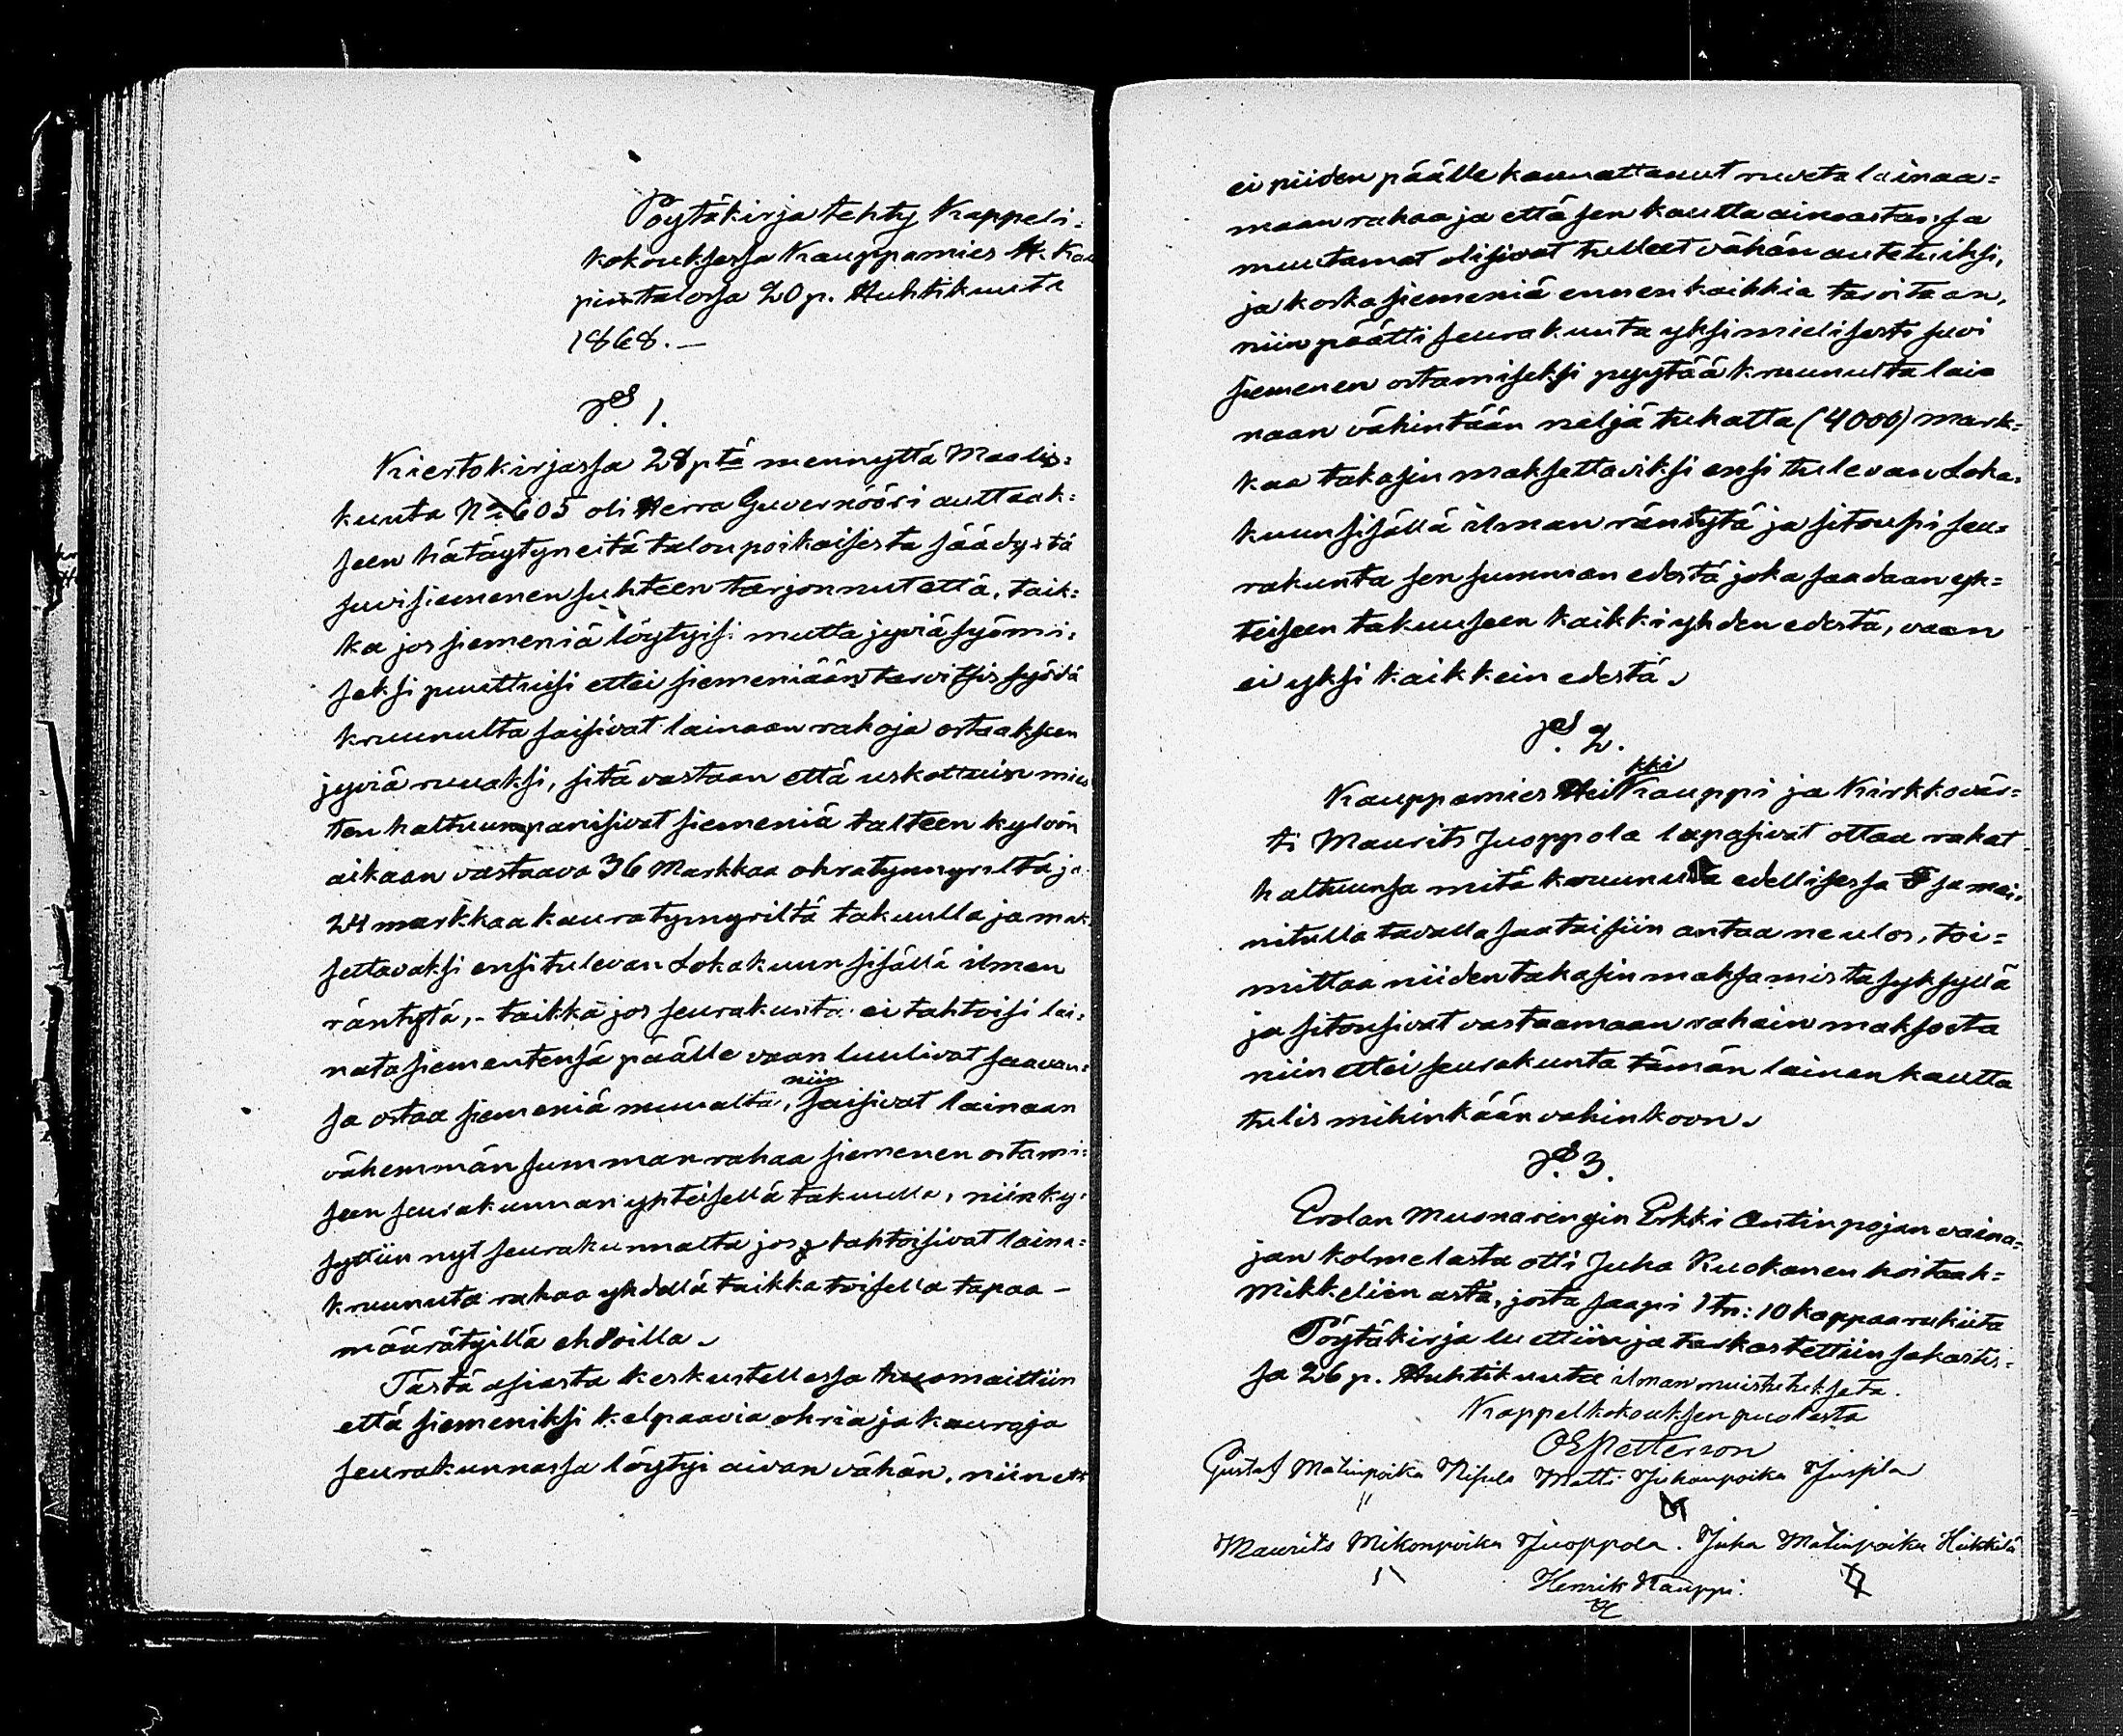 Pöytäkirja tehty Kappeli=
kokouksessa Kauppamies H. Kau
pintalossa 20 p. Huhtikuuta
1868.—
§. 1.
Kiertokirjassa 28 ptä mennyttä Maalis=
kuuta No 605 oli Herra Guvernööri auttaak=
seen hätäytyneitä talonpoikaisesta säädystä
suvisiemenen suhteen tarjonnut että, taik=
ka jos siemeniä löytyisi mutta jyviä syömi=
seksi puuttuisi ettei siemeniään tarvitsis syödä
kruunulta saisivat lainaan rahoja ostaakseen
jyviä ruuaksi, sitä vastaan että uskottuin mies
ten haltuun panisivat siemeniä talteen kylvön
aikaan vastaava 36 Markkaa ohratynnyriltä ja
24 markkaa kauratynnyriltä takuulla ja mak
settavaksi ensitulevan Lokakuun sisällä ilman
räntytä,- taikka jos seurakunta ei tahtoisi lai=
nata siementensä päälle vaan luulivat saavan=
sa ostaa siemeniä muualta, niin saisivat lainaan
vähemmän summan rahaa siemenen ostami=
seen seurakunnan yhteisellä takuulla, niin ky=
syttiin nyt seurakunnalta jos tahtoisivat laina=
kruunuta rahaa yhdellä taikka toisella tapaa —
määrätyillä ehdoilla.
Tästä asiasta keskustellessa huomaittiin
että siemeniksi kelpaavia ohria ja kauroja
seurakunnassa löytyi aivan vähän, niin ett
ei niiden päälle kannattanut ruveta lainaa=
maan rahaa ja että sen kautta ainoastansa
muutamat olisivat tulleet vähän autetuiksi,
ja koska siemeniä ennen kaikkia tarvitaan,
niin päätti seurakunta yksimielisesti suvi
siemenen ostamiseksi pyytää kruunulta lai=
naan vähintään neljä tuhatta (4000) mark=
kaa takasin maksettaviksi ensi tulevan Loka=
kuun sisällä ilman räntytä ja sitousi seu=
rakunta sen summan edestä joka saadaan yh=
teiseen takuuseen kaikki yhden edestä, vaan
ei yksi kaikkein edestä.
§. 2.
Kauppamies Heikki Kauppi ja Kirkkovär=
ti Maurits Juoppola lupasivat ottaa rahat
haltuunsa mitä kruunulta edellisessä §sa mai=
nitulla tavalla saataisiin antaa ne ulos, toi=
mittaa niiden takasin maksamista syksyllä
ja sitousivat vastaamaan rahain maksosta
niin ettei seurakunta tämän lainan kautta
tulis mihinkään vahinkoon.
§. 3.
Erolan Muonarengin Erkki Antinpojan vaina=
jan kolme lasta otti Juha Ruokanen hoitaak=
Mikkeliin asta, josta saapi 1 tn: 10 kappaa rukiita
Pöytäkirja luettiin ja tarkastettiin sakastis=
sa 26 p. Huhtikuuta ilman muistutukseta.
Kappelkokouksen puolesta
OE Petterson
Gustaf Matinpoika Nisula Matti Juhanpoika Juspila
Maurits Mikonpoika Juoppola. Juha Matinpoika Heikkilä
Henrik Kauppi.